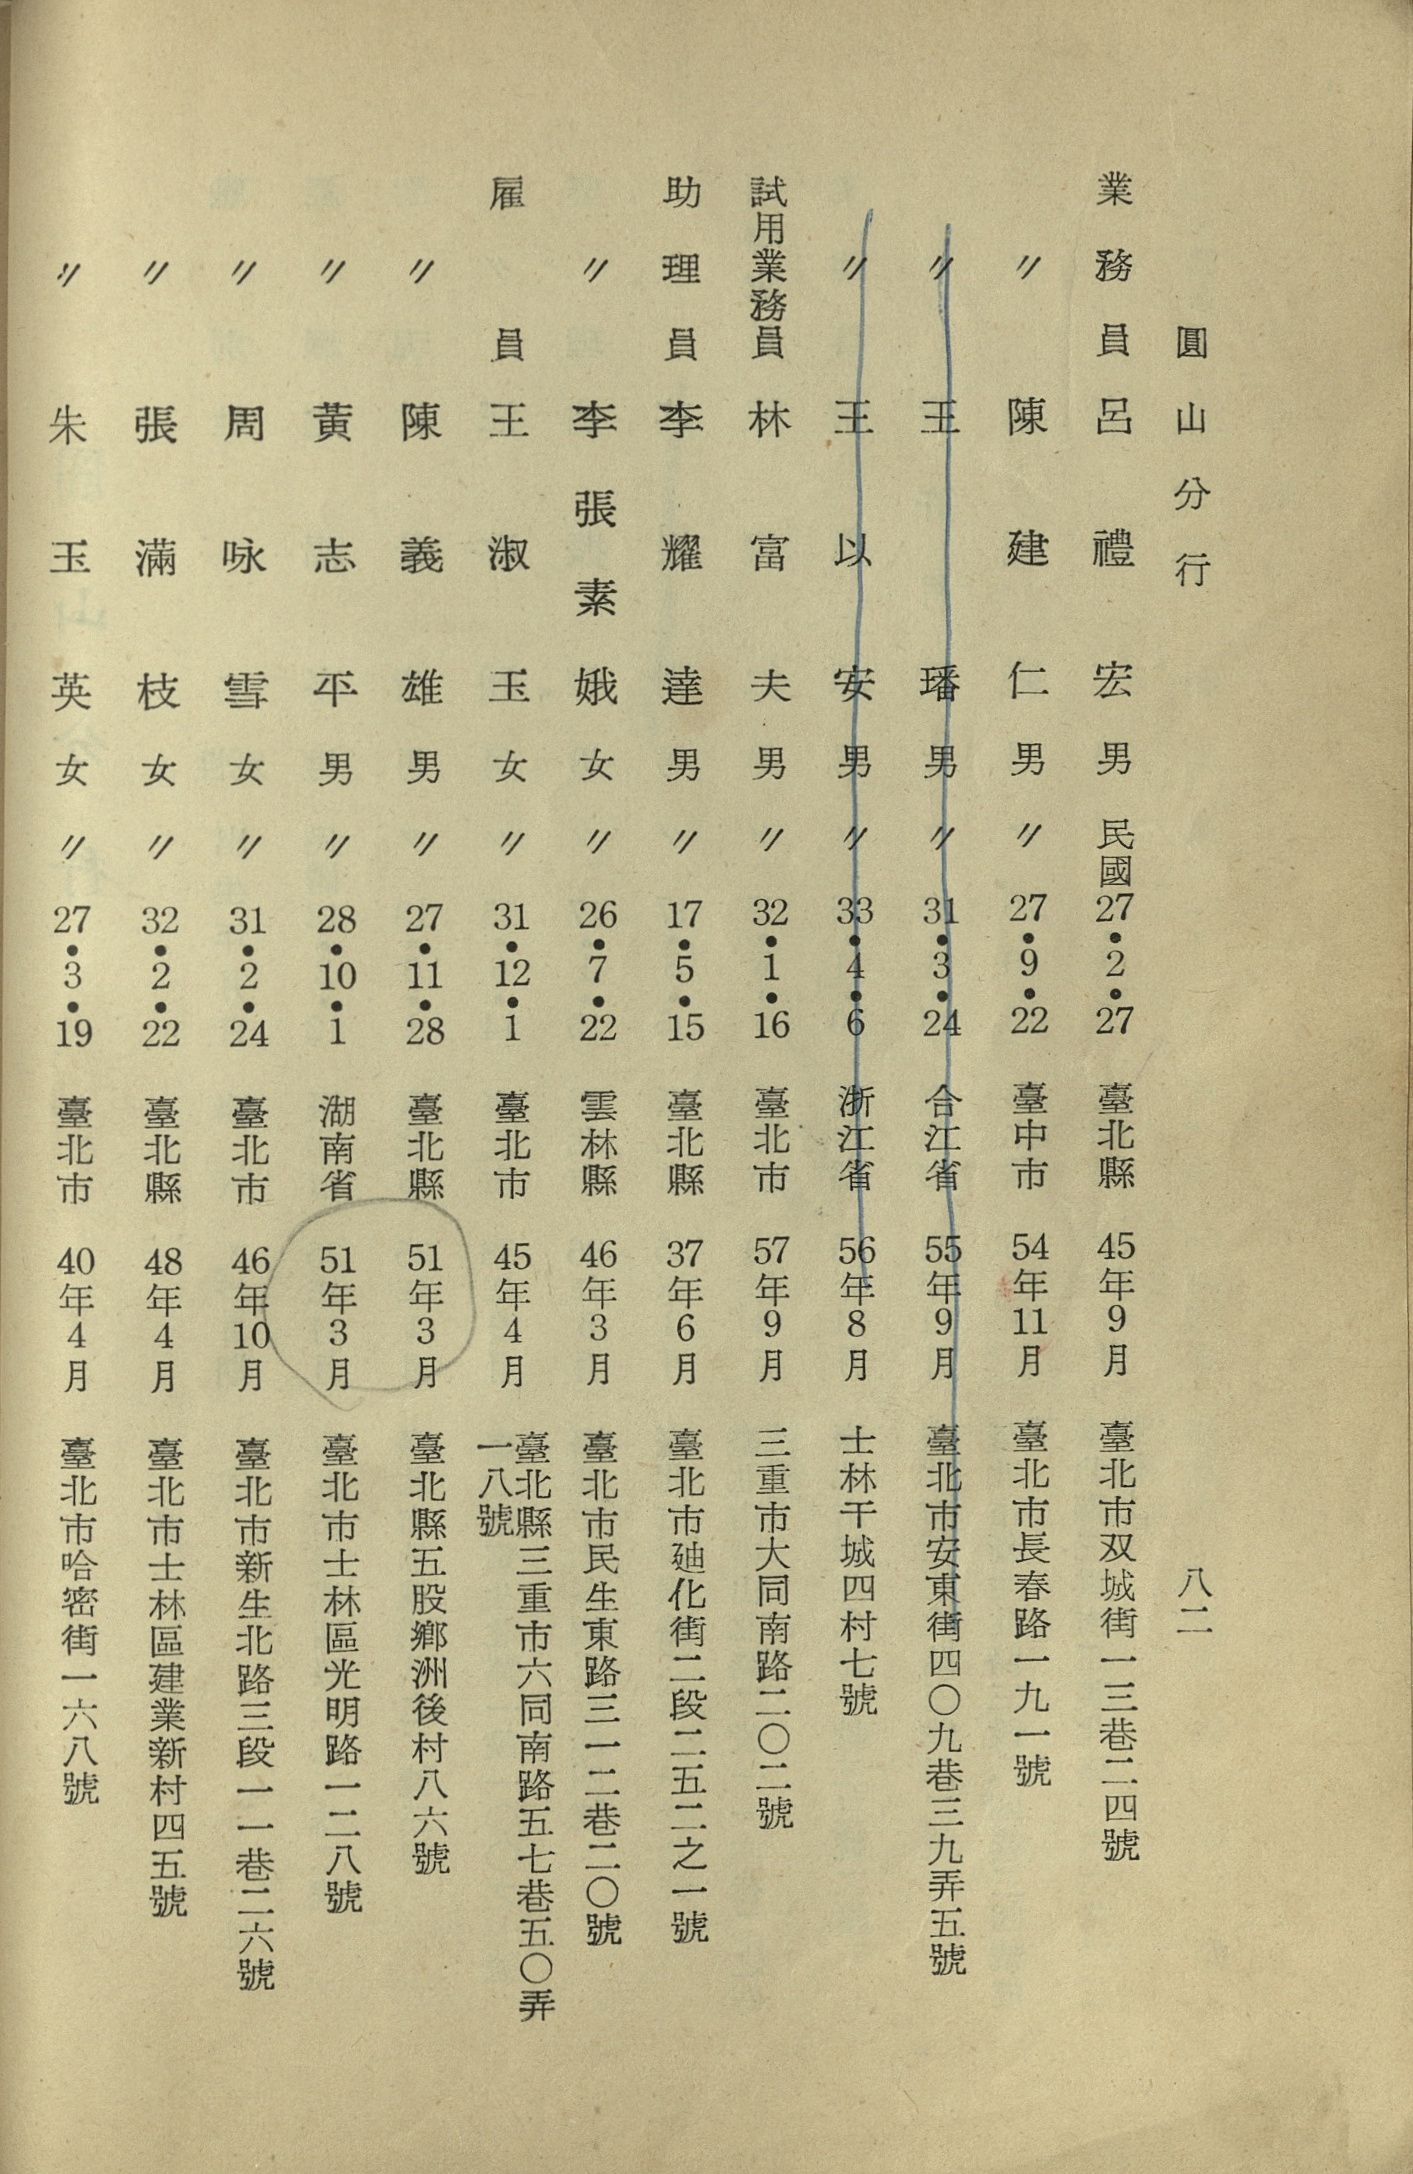 圓山分行 八二
業務員 呂禮宏 男 民國27•2•27 臺北縣 45年9月 臺北市双城街一三巷二四號
〃 陳建仁 男 〃 27•9•22 臺中市 54年11月 臺北市長春路一九一號
〃 王璠 男 〃 31•3•24 合江省 55年9月 臺北市安東街四〇九巷三九弄五號
〃 王以安 男 〃 33•4•6 浙江省 56年8月 士林干城四村七號
試用業務員 林富夫 男 〃 32•1•16 臺北市 57年9月 三重市大同南路二〇二號
助理員 李耀達 男 〃 17•5•15 臺北縣 37年6月 臺北市廸化街二段二五二之一號
〃 李張素娥 女 〃 26•7•22 雲林縣 46年3月 臺北市民生東路三一二巷二〇號
雇員 王淑玉 女 〃 31•12•1 臺北市 45年4月 臺北縣三重市六同南路五七巷五〇弄
一八號
〃 陳義雄 男 〃 27•11•28 臺北縣 51年3月 臺北縣五股鄉洲後村八六號
〃 黃志平 男 〃 28•10•1 湖南省 51年3月 臺北市士林區光明路一二八號
〃 周咏雪 女 〃 31•2•24 臺北市 46年10月 臺北市新生北路三段一一巷二六號
〃 張滿枝 女 〃 32•2•22 臺北縣 48年4月 臺北市士林區建業新村四五號
〃 朱玉英 女 〃 27•3•19 臺北市 40年4月 臺北市哈密街一六八號